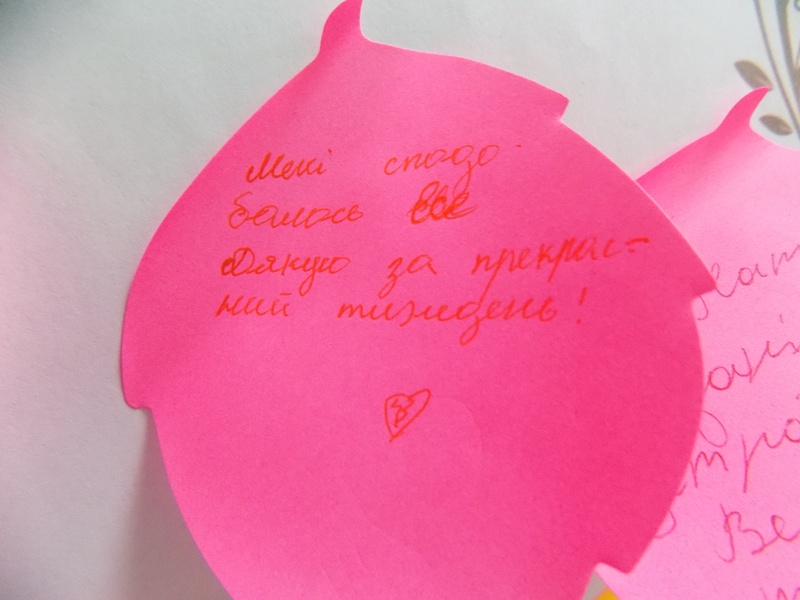 Мені сподо-
балось все
Дякую за прекрас-
ний тиждень!
Ве